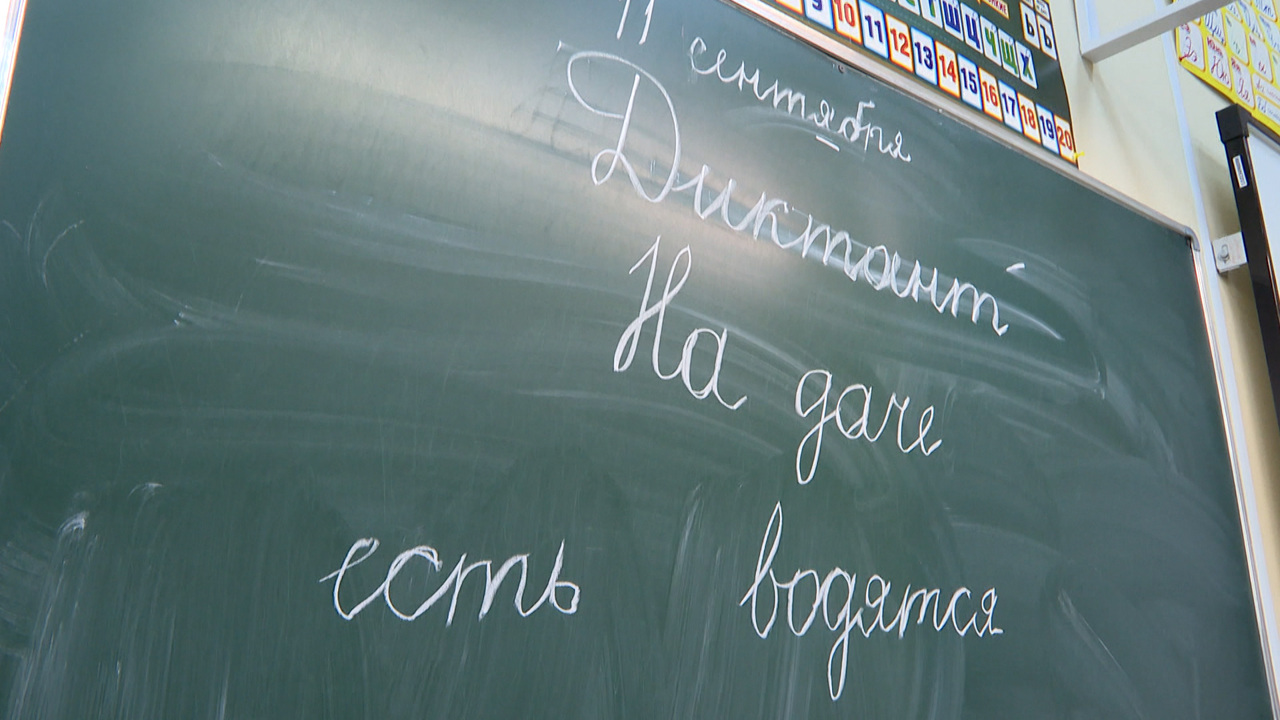 11 сентября
Диктант
На даче
есть водятся
9 10 11 12 13 14 15 16 17 18 19 20
Ш Ц Ч Щ Х
Ь Ъ